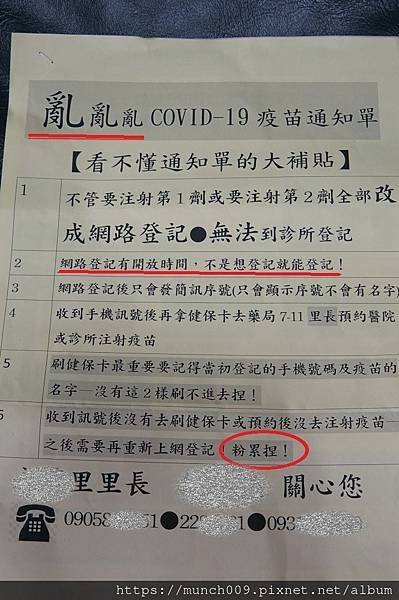 亂亂亂COVID-19疫苗通知單
【看不懂通知單的大補貼】
1 不管要注射第1劑或要注射第2劑全部改
成網路登記●無法到診所登記
2 網路登記有開放時間，不是想登記就能登記！
3 網路登記後只會發簡訊序號(只會顯示序號不會有名字)
4 收到手機訊號後再拿健保卡去藥局7-11里長預約醫院
或診所注射疫苗
5 刷健保卡最重要要記得當初登記的手機號碼及疫苗的
名字—沒有這2樣刷不進去捏！
收到訊號後沒有去刷健保卡或預約後沒去注射疫苗—
之後需要再重新上網登記！粉累捏！
里里長 關心您
☎09058 51●22 1●093
https://munch009.pixnet.net/album